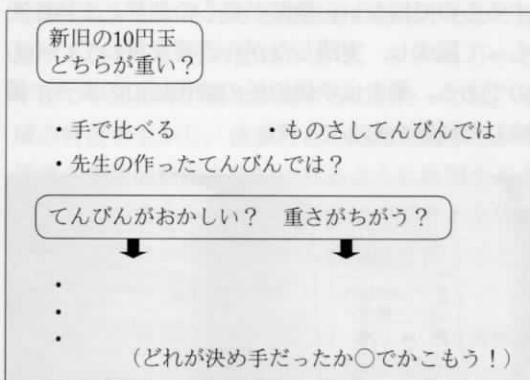 新旧の10円玉
どちらが重い？
・手で比べる　・ものさしてんびんでは
・先生の作ったてんびんでは？
てんびんがおかしい？　重さがちがう？
・
・
・
（どれが決め手だったか○でかこもう！）